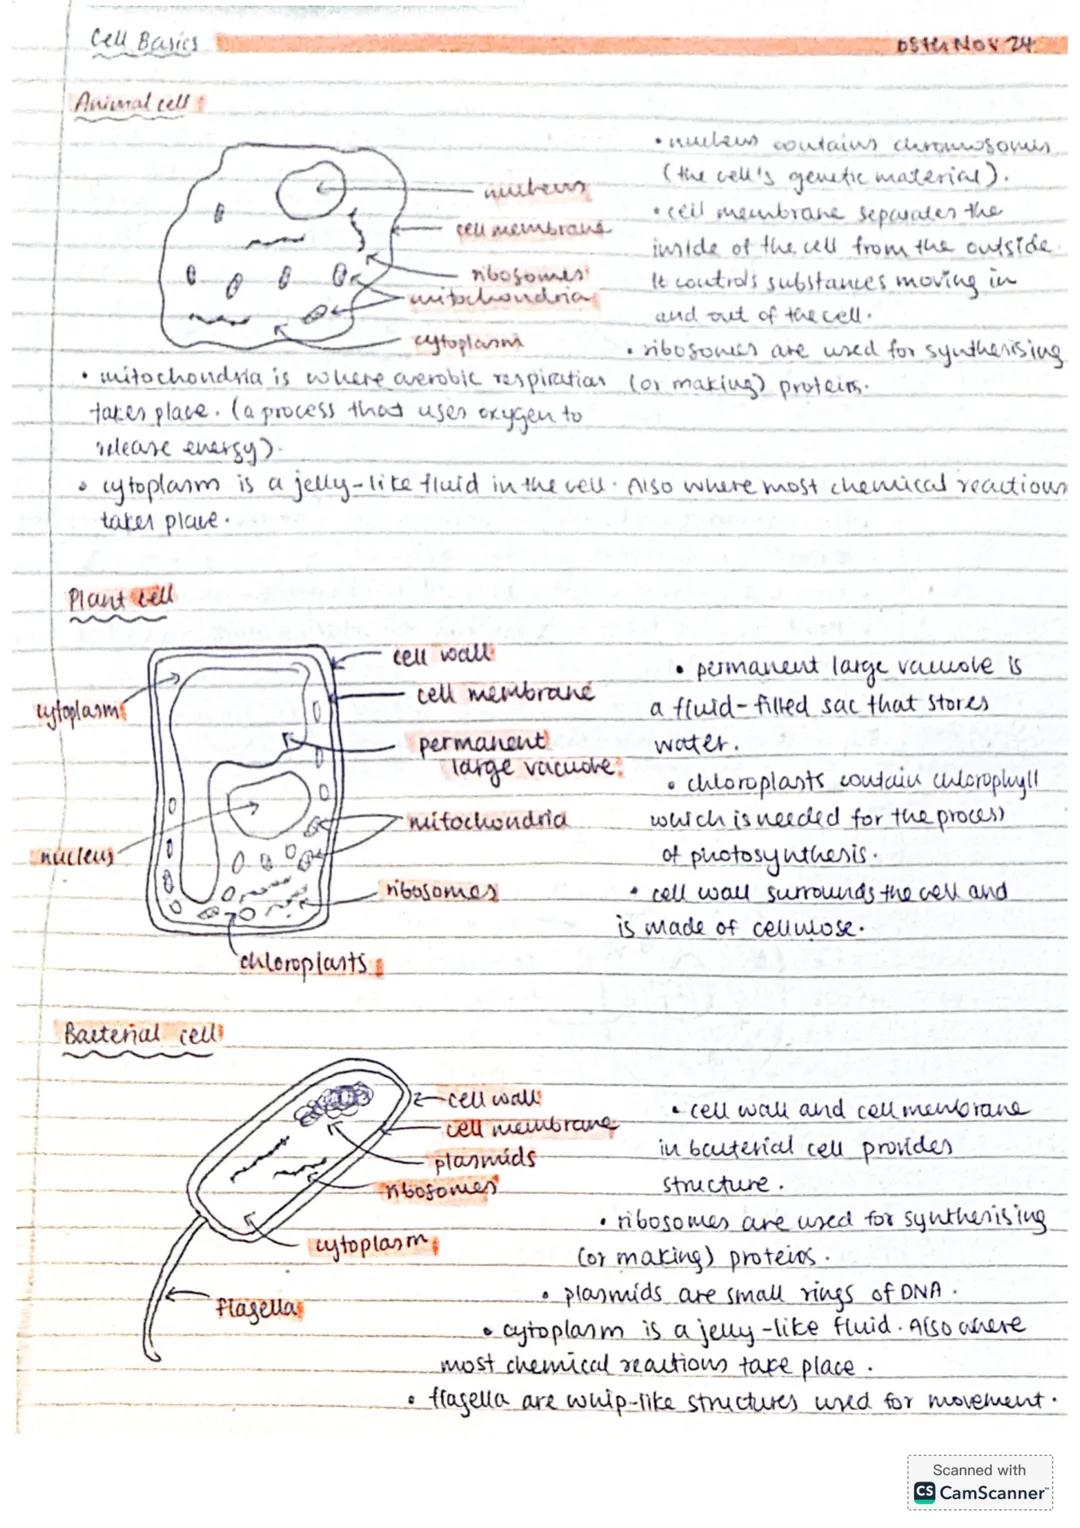 Cell Basics
05th Nov 24
Animal cell:
nucleus
cell membrane
ribosomes
mitochondria
cytoplasm
• nucleus contains chromosomes
(the cell's genetic material).
• cell membrane separates the
inside of the cell from the outside.
It controls substances moving in
and out of the cell.
• ribosomes are used for synthesising
(or making) proteins.
• mitochondria is where aerobic respiration
takes place. (a process that uses oxygen to
release energy).
• cytoplasm is a jelly-like fluid in the cell. Also where most chemical reactions
takes place.
Plant cell
cytoplasm
nucleus
cell wall
cell membrane
permanent
large vacuole
mitochondria
ribosomes
chloroplasts
• permanent large vacuole is
a fluid-filled sac that stores
water.
• chloroplasts contain chlorophyll
which is needed for the process
of photosynthesis.
• cell wall surrounds the cell and
is made of cellulose.
Bacterial cell
cell wall
cell membrane
plasmids
ribosomes
cytoplasm
flagella
• cell wall and cell membrane
in bacterial cell provides
structure.
• ribosomes are used for synthesising
(or making) proteins.
• plasmids are small rings of DNA.
• cytoplasm is a jelly-like fluid. Also where
most chemical reactions take place.
• flagella are whip-like structures used for movement.
Scanned with
CS CamScanner